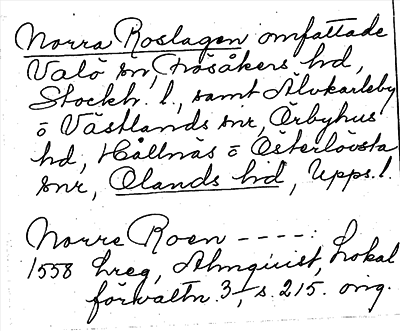 Norra Roslagen omfattade
Valö sn, Frösåkers hd,
Stockh. l., samt Älvkarleby
o Västlands snr, Örbyhus
hd, Hållnäs o Österlövsta
snr, Olands hd, Upps. l.
Norre Roen ----:
1558 hreg, Almquist, Lokal
förvaltn. 3, s. 215. orig.